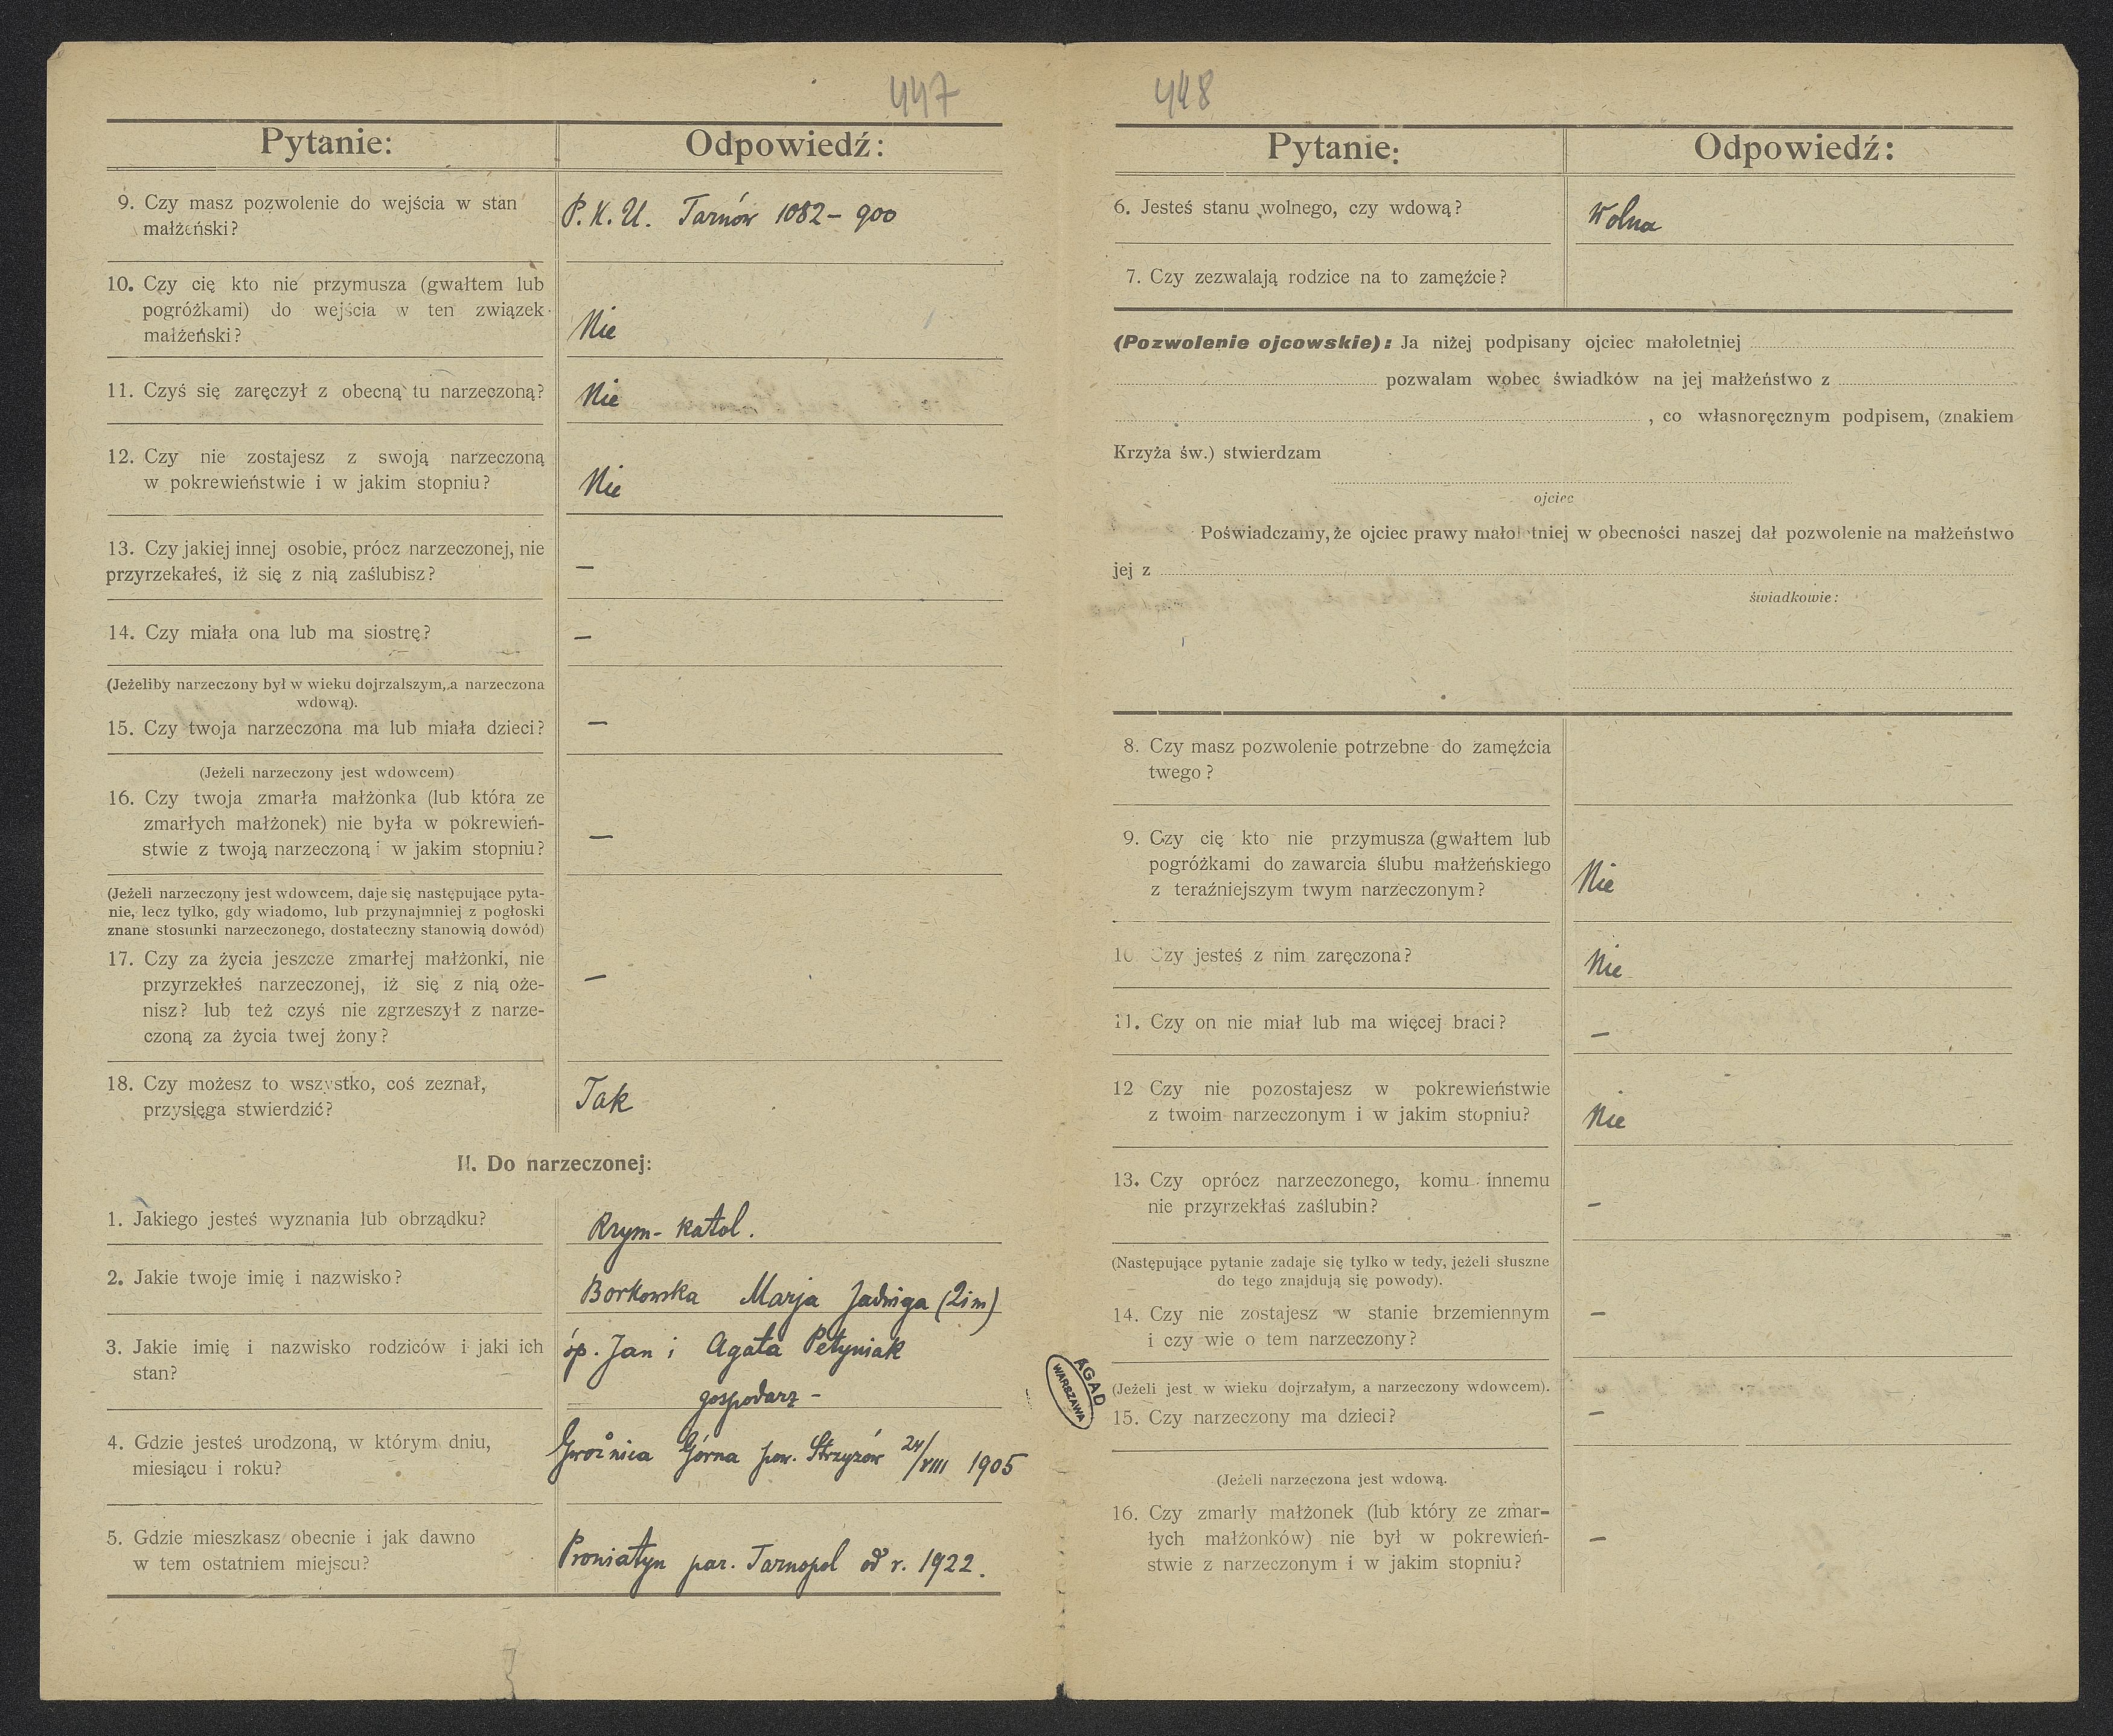 447
Pytanie: Odpowiedź:
9. Czy masz pozwolenie do wejścia w stan
małżeński?
P. K. U. Tarnów 1082 – 900
10. Czy cię kto nie przymusza (gwałtem lub
pogróżkami) do wejścia w ten związek
małżeński?
Nie
11. Czyś się zaręczył z obecną tu narzeczoną?
Nie
12. Czy nie zostajesz z swoją narzeczoną
w pokrewieństwie i w jakim stopniu?
Nie
13. Czy jakiej innej osobie, prócz narzeczonej, nie
przyrzekałeś, iż się z nią zaślubisz?
–
14. Czy miała ona lub ma siostrę?
–
(Jeżeliby narzeczony był w wieku dojrzalszym, a narzeczona
wdową).
15. Czy twoja narzeczona ma lub miała dzieci?
–
(Jeżeli narzeczony jest wdowcem)
16. Czy twoja zmarła małżonka (lub która ze
zmarłych małżonek) nie była w pokrewień-
stwie z twoją narzeczoną i w jakim stopniu?
–
(Jeżeli narzeczony jest wdowcem, daje się następujące pyta-
nie, lecz tylko, gdy wiadomo, lub przynajmniej z pogłoski
znane stosunki narzeczonego, dostateczny stanowią dowód)
17. Czy za życia jeszcze zmarłej małżonki, nie
przyrzekłeś narzeczonej, iż się z nią oże-
nisz? lub też czyś nie zgrzeszył z narze-
czoną za życia twej żony?
–
18. Czy możesz to wszystko, coś zeznał,
przysięga stwierdzić?
Tak
II. Do narzeczonej:
1. Jakiego jesteś wyznania lub obrządku?
Rzym- katol.
2. Jakie twoje imię i nazwisko?
Borkowska Marja Jadwiga (2im)
3. Jakie imię i nazwisko rodziców i jaki ich
stan?
śp. Jan i Agata Petyniak
gospodarz –
4. Gdzie jesteś urodzoną, w którym dniu,
miesiącu i roku?
Górna pow. Strzyżów 24/VIII 1905
5. Gdzie mieszkasz obecnie i jak dawno
w tem ostatniem miejscu?
Proniatyn par. Tarnopol od r. 1922.
448
Pytanie: Odpowiedź:
6. Jesteś stanu wolnego, czy wdową?
Wolna
7. Czy zezwalają rodzice na to zamęźcie?
(Pozwolenie ojcowskie): Ja niżej podpisany ojciec małoletniej
pozwalam wobec świadków na jej małżeństwo z
, co własnoręcznym podpisem, (znakiem
Krzyża św.) stwierdzam
ojciec
Poświadczamy, że ojciec prawy małoletniej w obecności naszej dał pozwolenie na małżeństwo
jej z
świadkowie:
8. Czy masz pozwolenie potrzebne do zamęźcia
twego?
9. Czy cię kto nie przymusza (gwałtem lub
pogróżkami do zawarcia ślubu małżeńskiego
z teraźniejszym twym narzeczonym?
Nie
10. Czy jesteś z nim zaręczona?
Nie
11. Czy on nie miał lub ma więcej braci?
–
12 Czy nie pozostajesz w pokrewieństwie
z twoim narzeczonym i w jakim stopniu?
Nie
13. Czy oprócz narzeczonego, komu innemu
nie przyrzekłaś zaślubin?
–
(Następujące pytanie zadaje się tylko w tedy, jeżeli słuszne
do tego znajdują się powody).
14. Czy nie zostajesz w stanie brzemiennym
i czy wie o tem narzeczony?
–
(Jeżeli jest w wieku dojrzałym, a narzeczony wdowcem).
15. Czy narzeczony ma dzieci?
–
(Jeżeli narzeczona jest wdową.
16. Czy zmarły małżonek (lub który ze zmar-
łych małżonków) nie był w pokrewień-
stwie z narzeczonym i w jakim stopniu?
–
AGAD
WARSZAWA